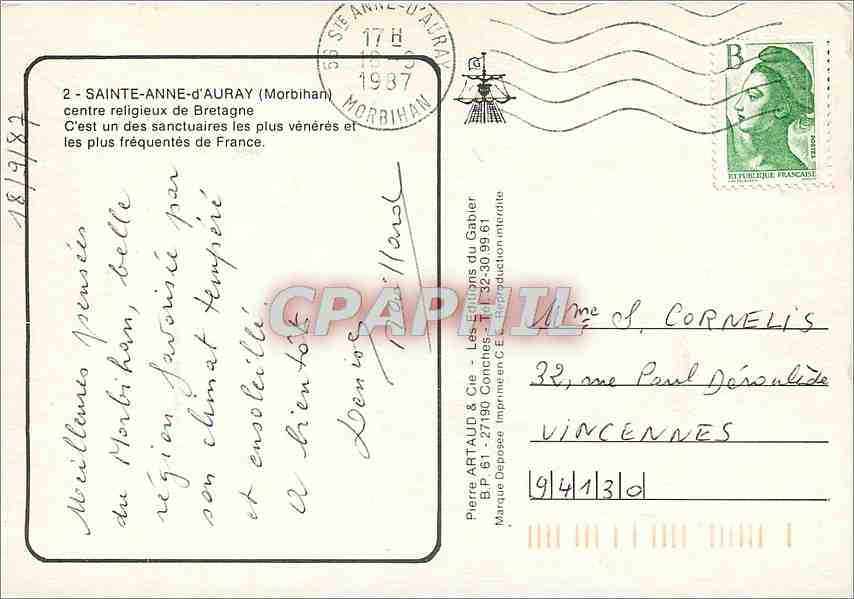 56 STE ANNE-D'AURAY
17 H
18-9
1987
MORBIHAN
G
B
POSTES
REPUBLIQUE FRANÇAISE
2 - SAINTE-ANNE-d'AURAY (Morbihan)
centre religieux de Bretagne
C'est un des sanctuaires les plus vénérés et
les plus fréquentés de France.
18/9/87
Meilleures pensées
du Morbihan, belle
région favorisée par
son climat tempéré
et ensoleillé
a bientôt
Denise
CPAPHIL
Pierre ARTAUD & Cie - Les Editions du Gabier
B.P. 61 - 27190 Conches - Tél. 32-30 99 61
Marque Déposée Imprimé en C.E.E. Reproduction interdite
Mme S. CORNELIS
32, rue Paul Déroulède
VINCENNES
94130